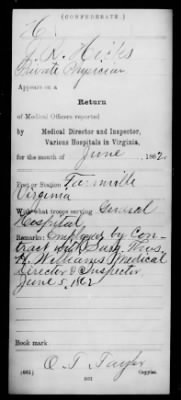 (CONFEDERATE.)
H.
Hicks
Private Physician
Appears on a
Return
of Medical Officers reported
by
Medical Director and Inspector,
Various Hospitals in Virginia,
for the month of June, 1862.
Post or Station Farmville
Virginia
With what troops serving General
Hospital
Remarks: Employed by Con-
tract with Surg. Thos.
H. Williams Medical
Director & Inspector
June 5, 1862
Book mark
O. T. Taylor
(661) Copyist.